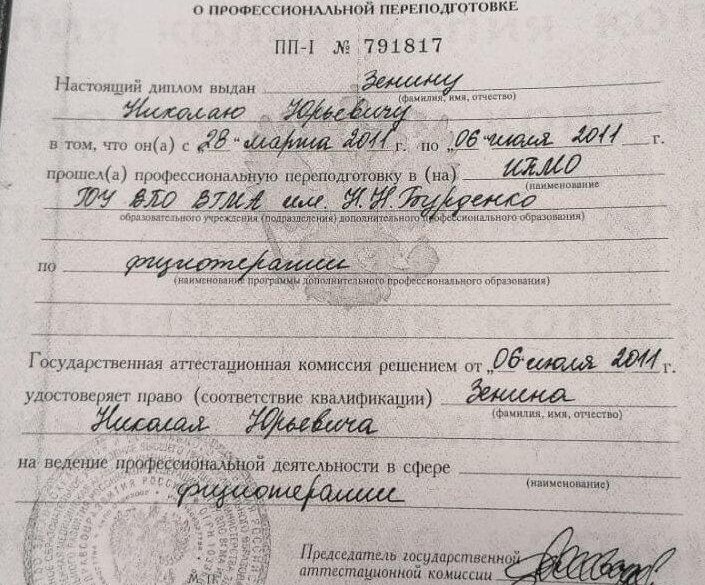 О ПРОФЕССИОНАЛЬНОЙ ПЕРЕПОДГОТОВКЕ
ПП-I № 791817
Настоящий диплом выдан Зенину
(фамилия, имя, отчество)
Николаю Юрьевичу
в том, что он(а) с „28" марта 2011 г. по „06" июля 2011 г.
прошел(а) профессиональную переподготовку в (на) ИПМО
(наименование
ГОУ ВПО ВГМА им. Н.Н.Бурденко
образовательного учреждения (подразделения) дополнительного профессионального образования)
по физиотерапии
(наименование программы дополнительного профессионального образования)
Государственная аттестационная комиссия решением от „06" июля 2011 г.
удостоверяет право (соответствие квалификации) Зенина
(фамилия, имя, отчество)
Николая Юрьевича
на ведение профессиональной деятельности в сфере
(наименование)
физиотерапии
Председатель государственной
аттестационной комиссии